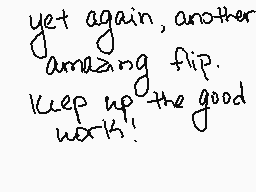 yet again, another
amazing flip.
keep up the good
work!